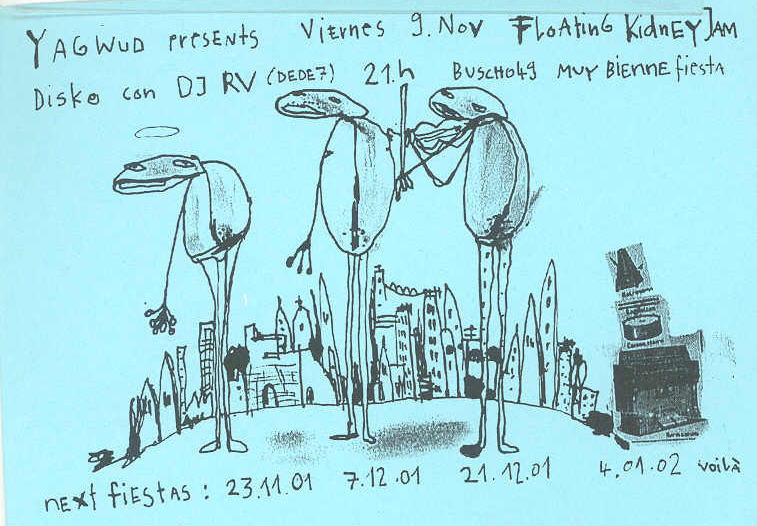 YAGWUD PRESENTS Viernes 9. Nov FLOATING KidnEY JAM
Disko con DJ RV (DEDE7) 21.h BUSCHO49 MUY BIENNE fiesta
next fiestas : 23.11.01 7.12.01 21.12.01 4.01.02 voilà